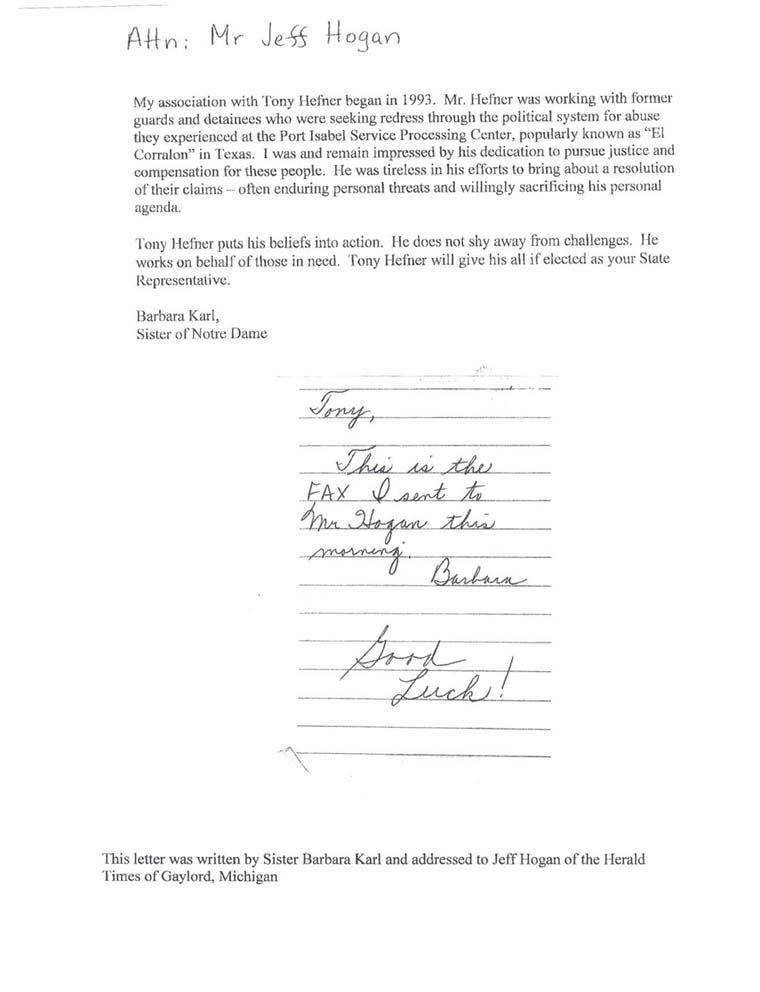 Attn: Mr Jeff Hogan
My association with Tony Hefner began in 1993. Mr. Hefner was working with former
guards and detainees who were seeking redress through the political system for abuse
they experienced at the Port Isabel Service Processing Center, popularly known as “El
Corralon” in Texas. I was and remain impressed by his dedication to pursue justice and
compensation for these people. He was tireless in his efforts to bring about a resolution
of their claims – often enduring personal threats and willingly sacrificing his personal
agenda.
Tony Hefner puts his beliefs into action. He does not shy away from challenges. He
works on behalf of those in need. Tony Hefner will give his all if elected as your State
Representative.
Barbara Karl,
Sister of Notre Dame
Tony,
This is the
FAX I sent to
Mr Hogan this
morning.
Barbara
Good
Luck!
This letter was written by Sister Barbara Karl and addressed to Jeff Hogan of the Herald
Times of Gaylord, Michigan